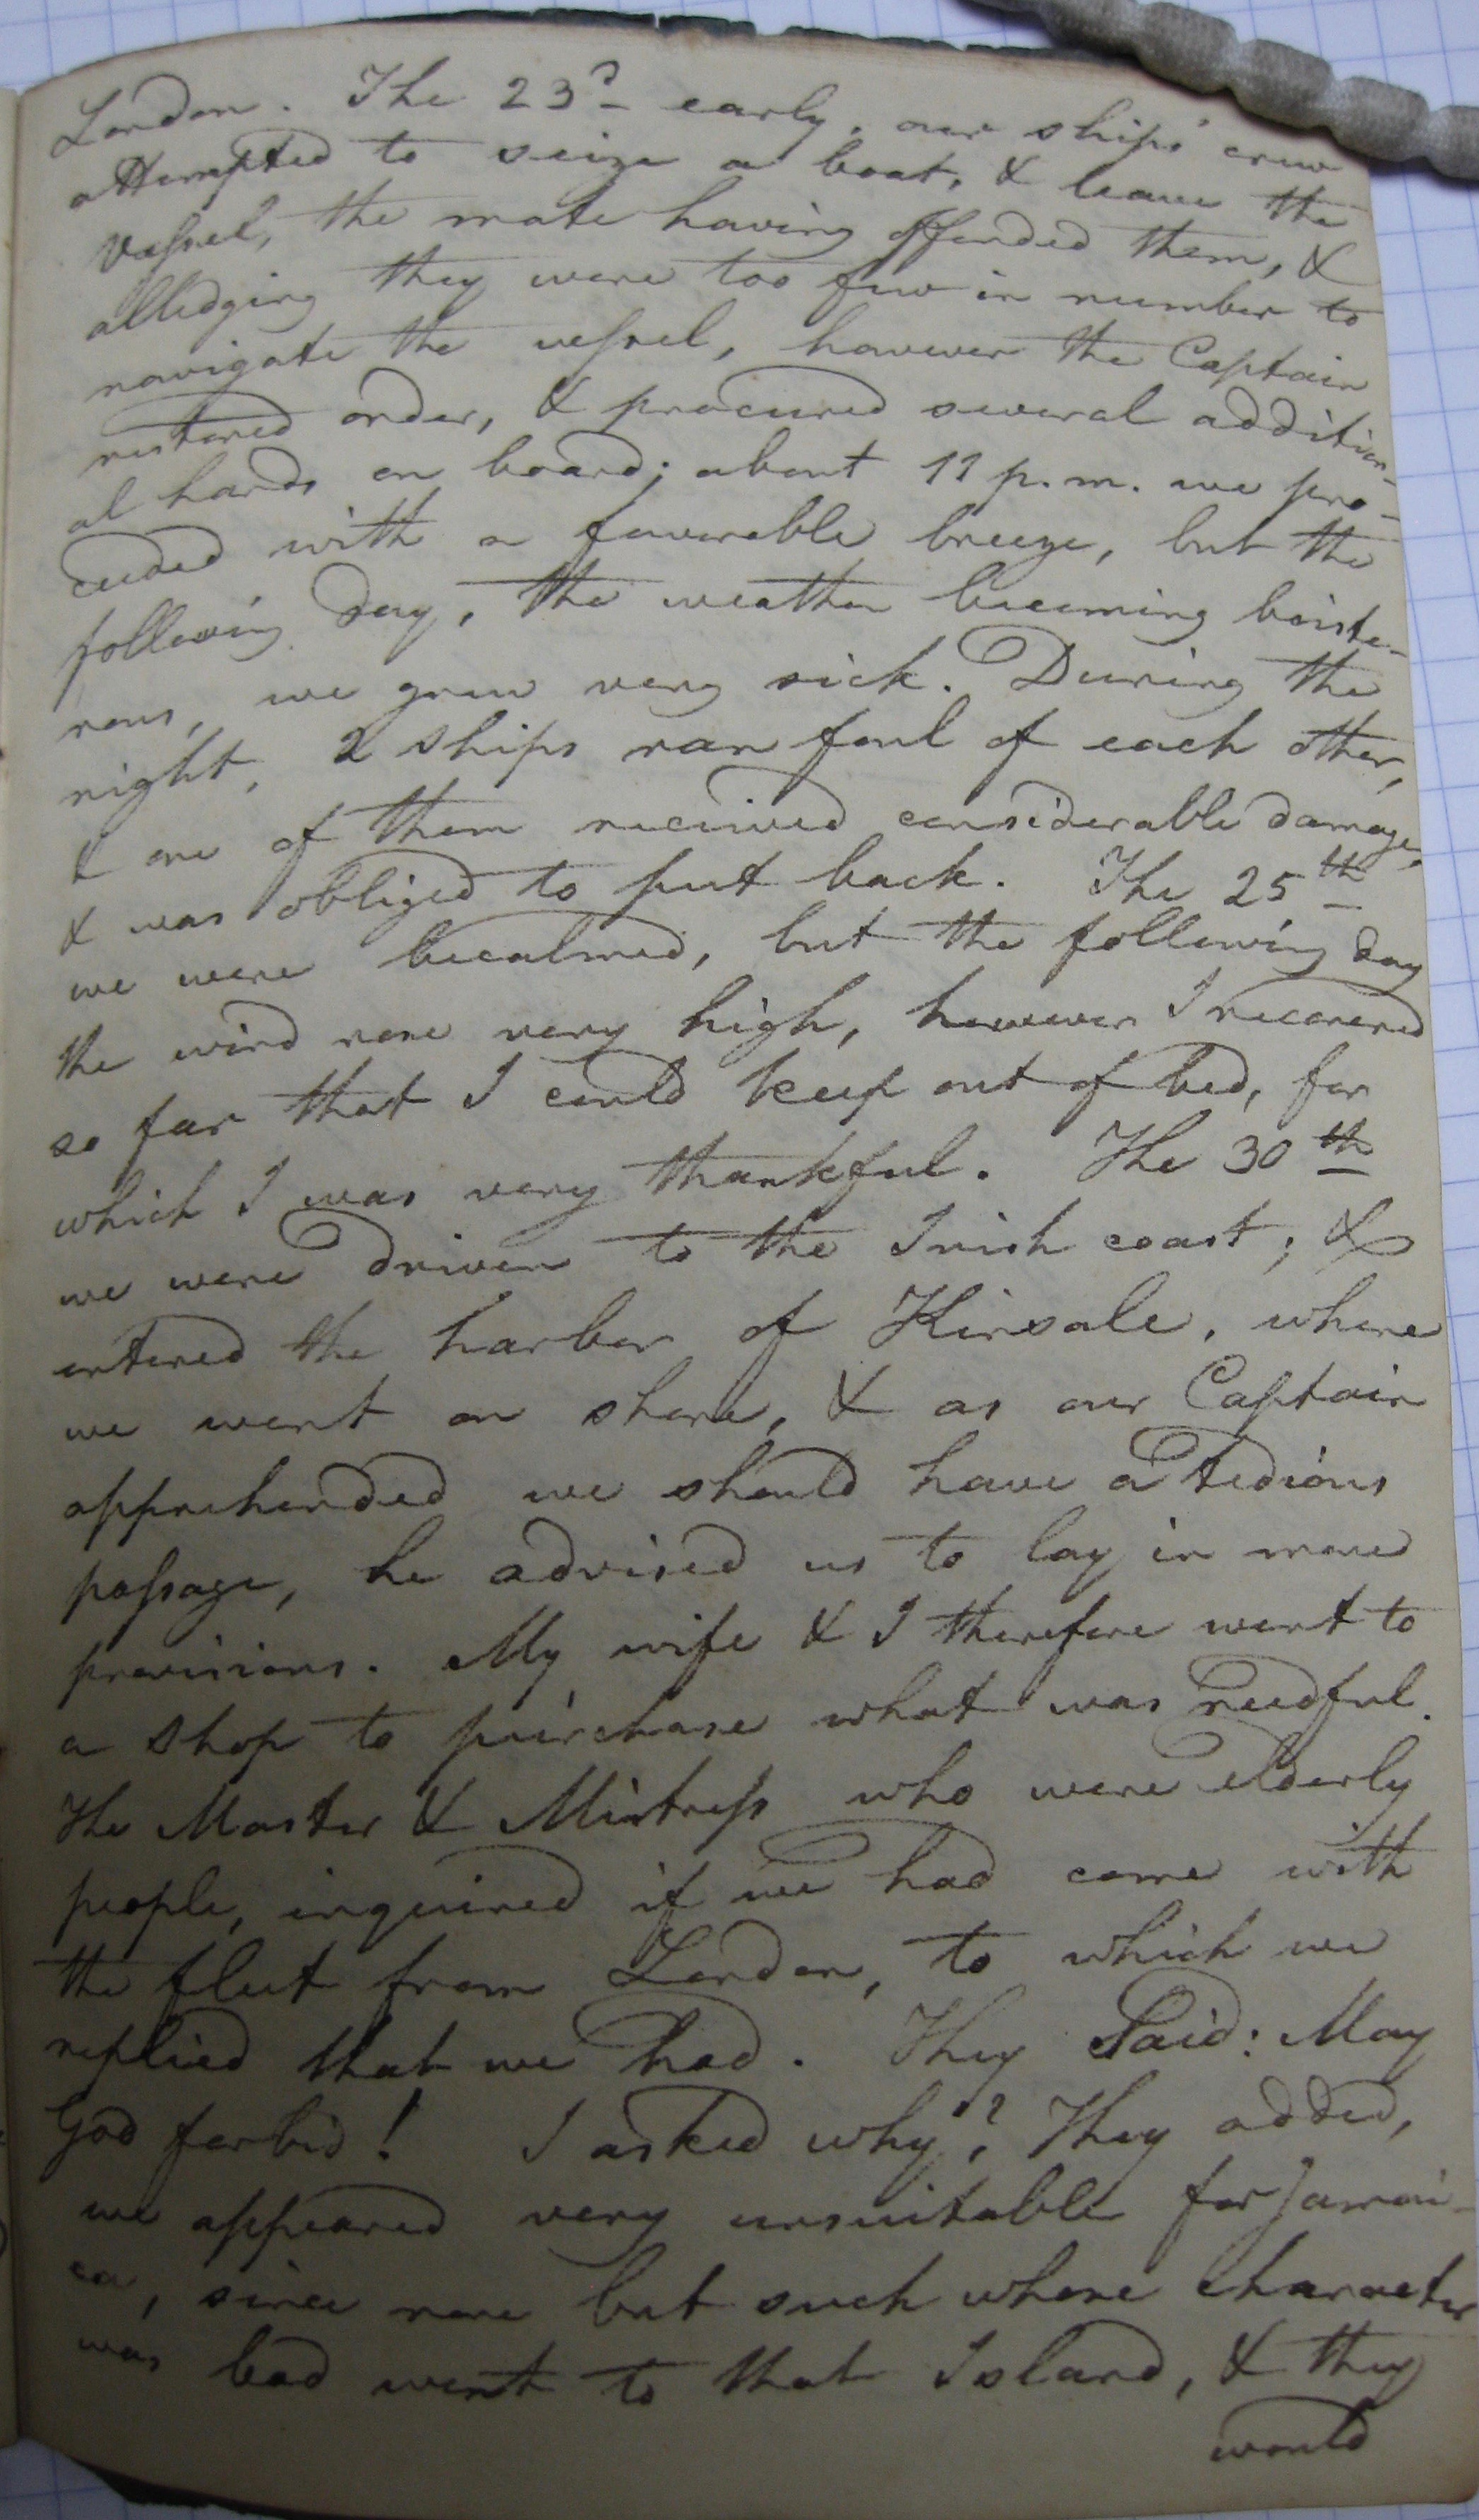 London. The 23d early, our ships' crew
attempted to seize a boat, & leave the
vessel, the mate having offended them, &
alledging they were too few in number to
navigate the vessel, however the Captain
restored order, & procured several addition-
al hands on board; about 11 p.m. we pro-
ceeded with a favorable breeze, but the
following day, the weather becoming boiste-
rous, we grew very sick. During the
night, 2 ships ran foul of each other,
& one of them received considerable damage,
& was obliged to put back. The 25th
we were becalmed, but the following day
the wind rose very high, however I recovered
so far that I could keep out of bed, for
which I was very thankful. The 30th
we were driven to the Irish coast; &
entered the harbor of Kinsale, where
we went on shore, & as our Captain
apprehended we should have a tedious
passage, he advised us to lay in more
provisions. My wife & I therefore went to
a shop to purchase what was needful.
The Master & Mistress who were elderly
people, inquired if we had come with
the fleet from London, to which we
replied that we had. They Said: May
God forbid! I asked why? They added,
we appeared very unsuitable for Jamai-
ca, since none but such whose character
was bad went to that Island, & they
would